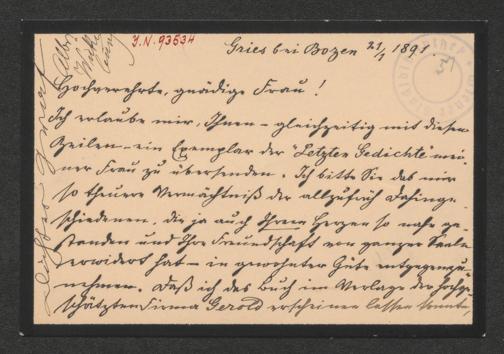 J.N. 93534
Gries bei Bozen 21/1 1891.
Hochgeehrte, gnädige Frau!
Ich erlaube mir, Ihnen – gleichzeitig mit diesen
Zeilen – ein Exemplar der "Letzten Gedichte" mei-
ner Frau zu übersenden. Ich bitte Sie das mir
so theuere Vermächtniß der allzufrüh Dahinge-
schiedenen, die ja auch Ihrem Herzen so nahe ge-
standen und Ihre Freundschaft von ganzer Seele
erwidert hat – in gewohnter Güte entgegenzu-
nehmen. Daß ich das Buch im Verlage der hochge-
schätzten Firma Gerold erscheinen lassen konnte,